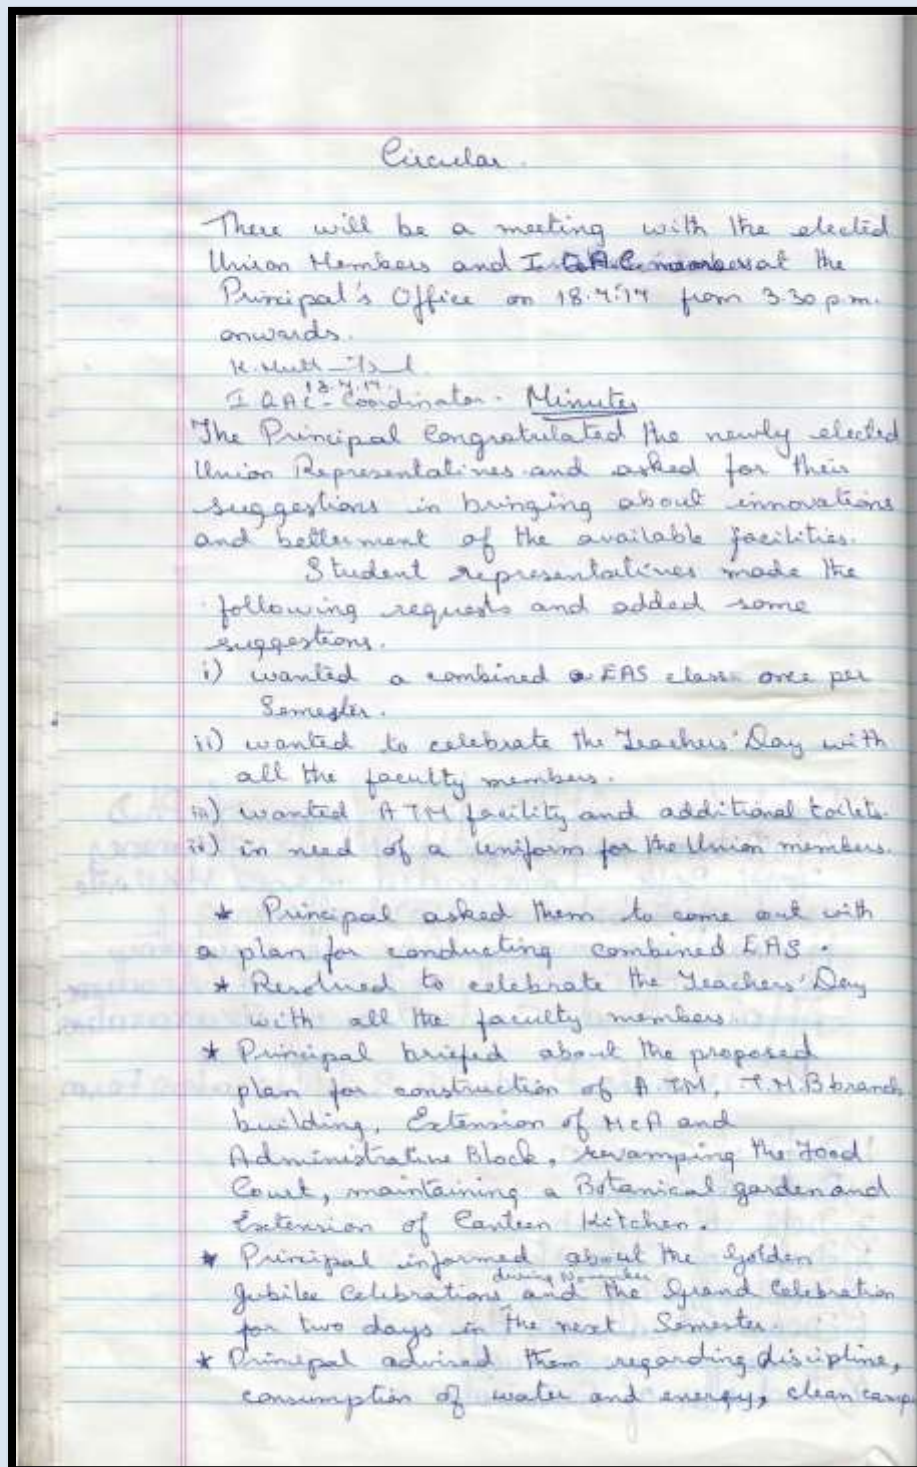 Circular.
There will be a meeting with the elected
Union Members and IQAC members at the
Principal's Office on 18.7.17 from 3.30 p.m.
onwards.
K.
IQAC - Coordinator. Minutes
The Principal Congratulated the newly elected
Union Representatives and asked for their
suggestions in bringing about innovations
and betterment of the available facilities.
Student representatives made the
following requests and added some
suggestions.
i) wanted a combined EAS class once per
Semester.
ii) wanted to celebrate the Teachers' Day with
all the faculty members.
iii) wanted ATM facility and additional toilets.
iv) in need of a uniform for the Union members.
* Principal asked them to come out with
a plan for conducting combined EAS.
* Resolved to celebrate the Teachers' Day
with all the faculty members.
* Principal briefed about the proposed
plan for construction of ATM, T.M.B branch
building, Extension of McA and
Administrative Block, revamping the Food
Court, maintaining a Botanical garden and
Extension of Canteen Kitchen.
* Principal informed about the Golden
Jubilee Celebrations during November and the Grand Celebration
for two days in the next Semester.
* Principal advised them regarding discipline,
consumption of water and energy, clean camp